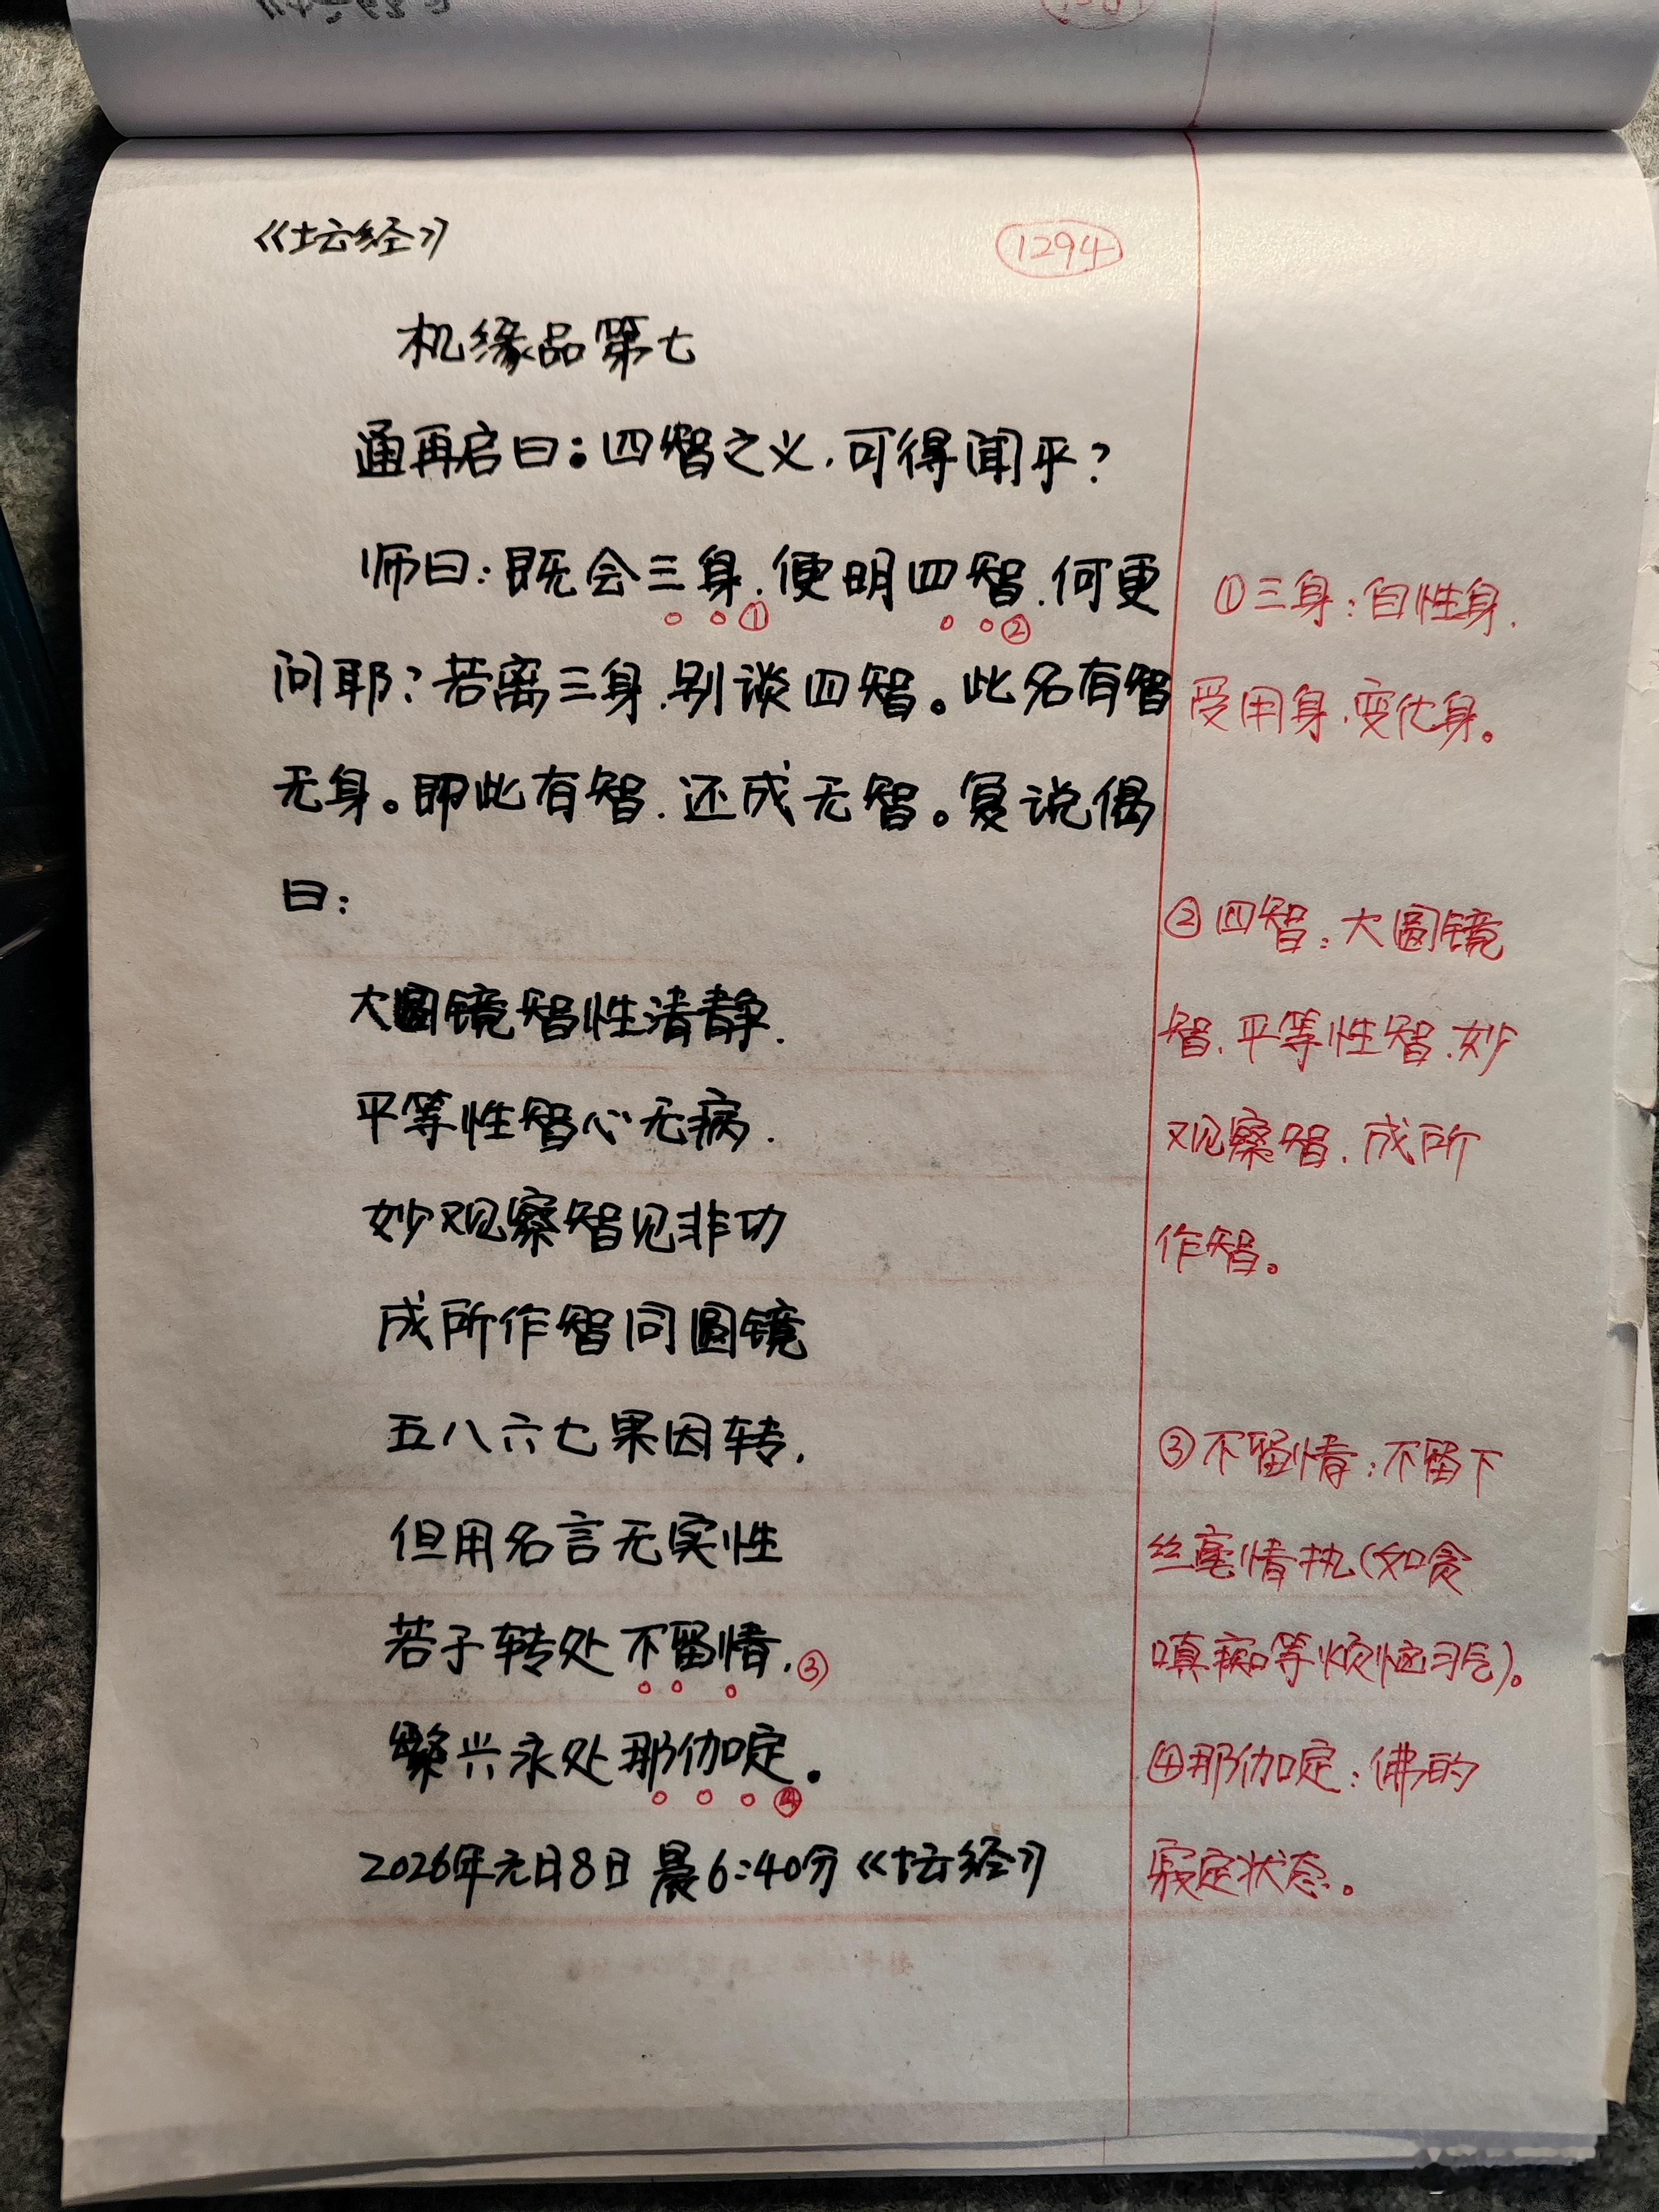 《坛经》 1294
机缘品第七
通再启曰：四智之义，可得闻乎？
师曰：既会三身①，便明四智②，何更
问耶？若离三身，别谈四智。此名有智
无身。即此有智，还成无智。复说偈
曰：
大圆镜智性清静，
平等性智心无病，
妙观察智见非功
成所作智同圆镜
五八六七果因转，
但用名言无实性
若于转处不留情，③
繁兴永处那伽定。④
2026年元日8日 晨6:40分《坛经》
①三身：自性身，
受用身，变化身。
②四智：大圆镜
智，平等性智，妙
观察智，成所
作智。
③不留情：不留下
丝毫情执（如贪
嗔痴等烦恼习气）。
④那伽定：佛的
寂定状态。